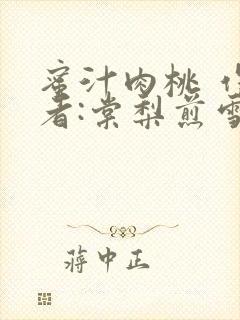 蜜汁肉桃 作
者:棠梨煎雪
蒋中正